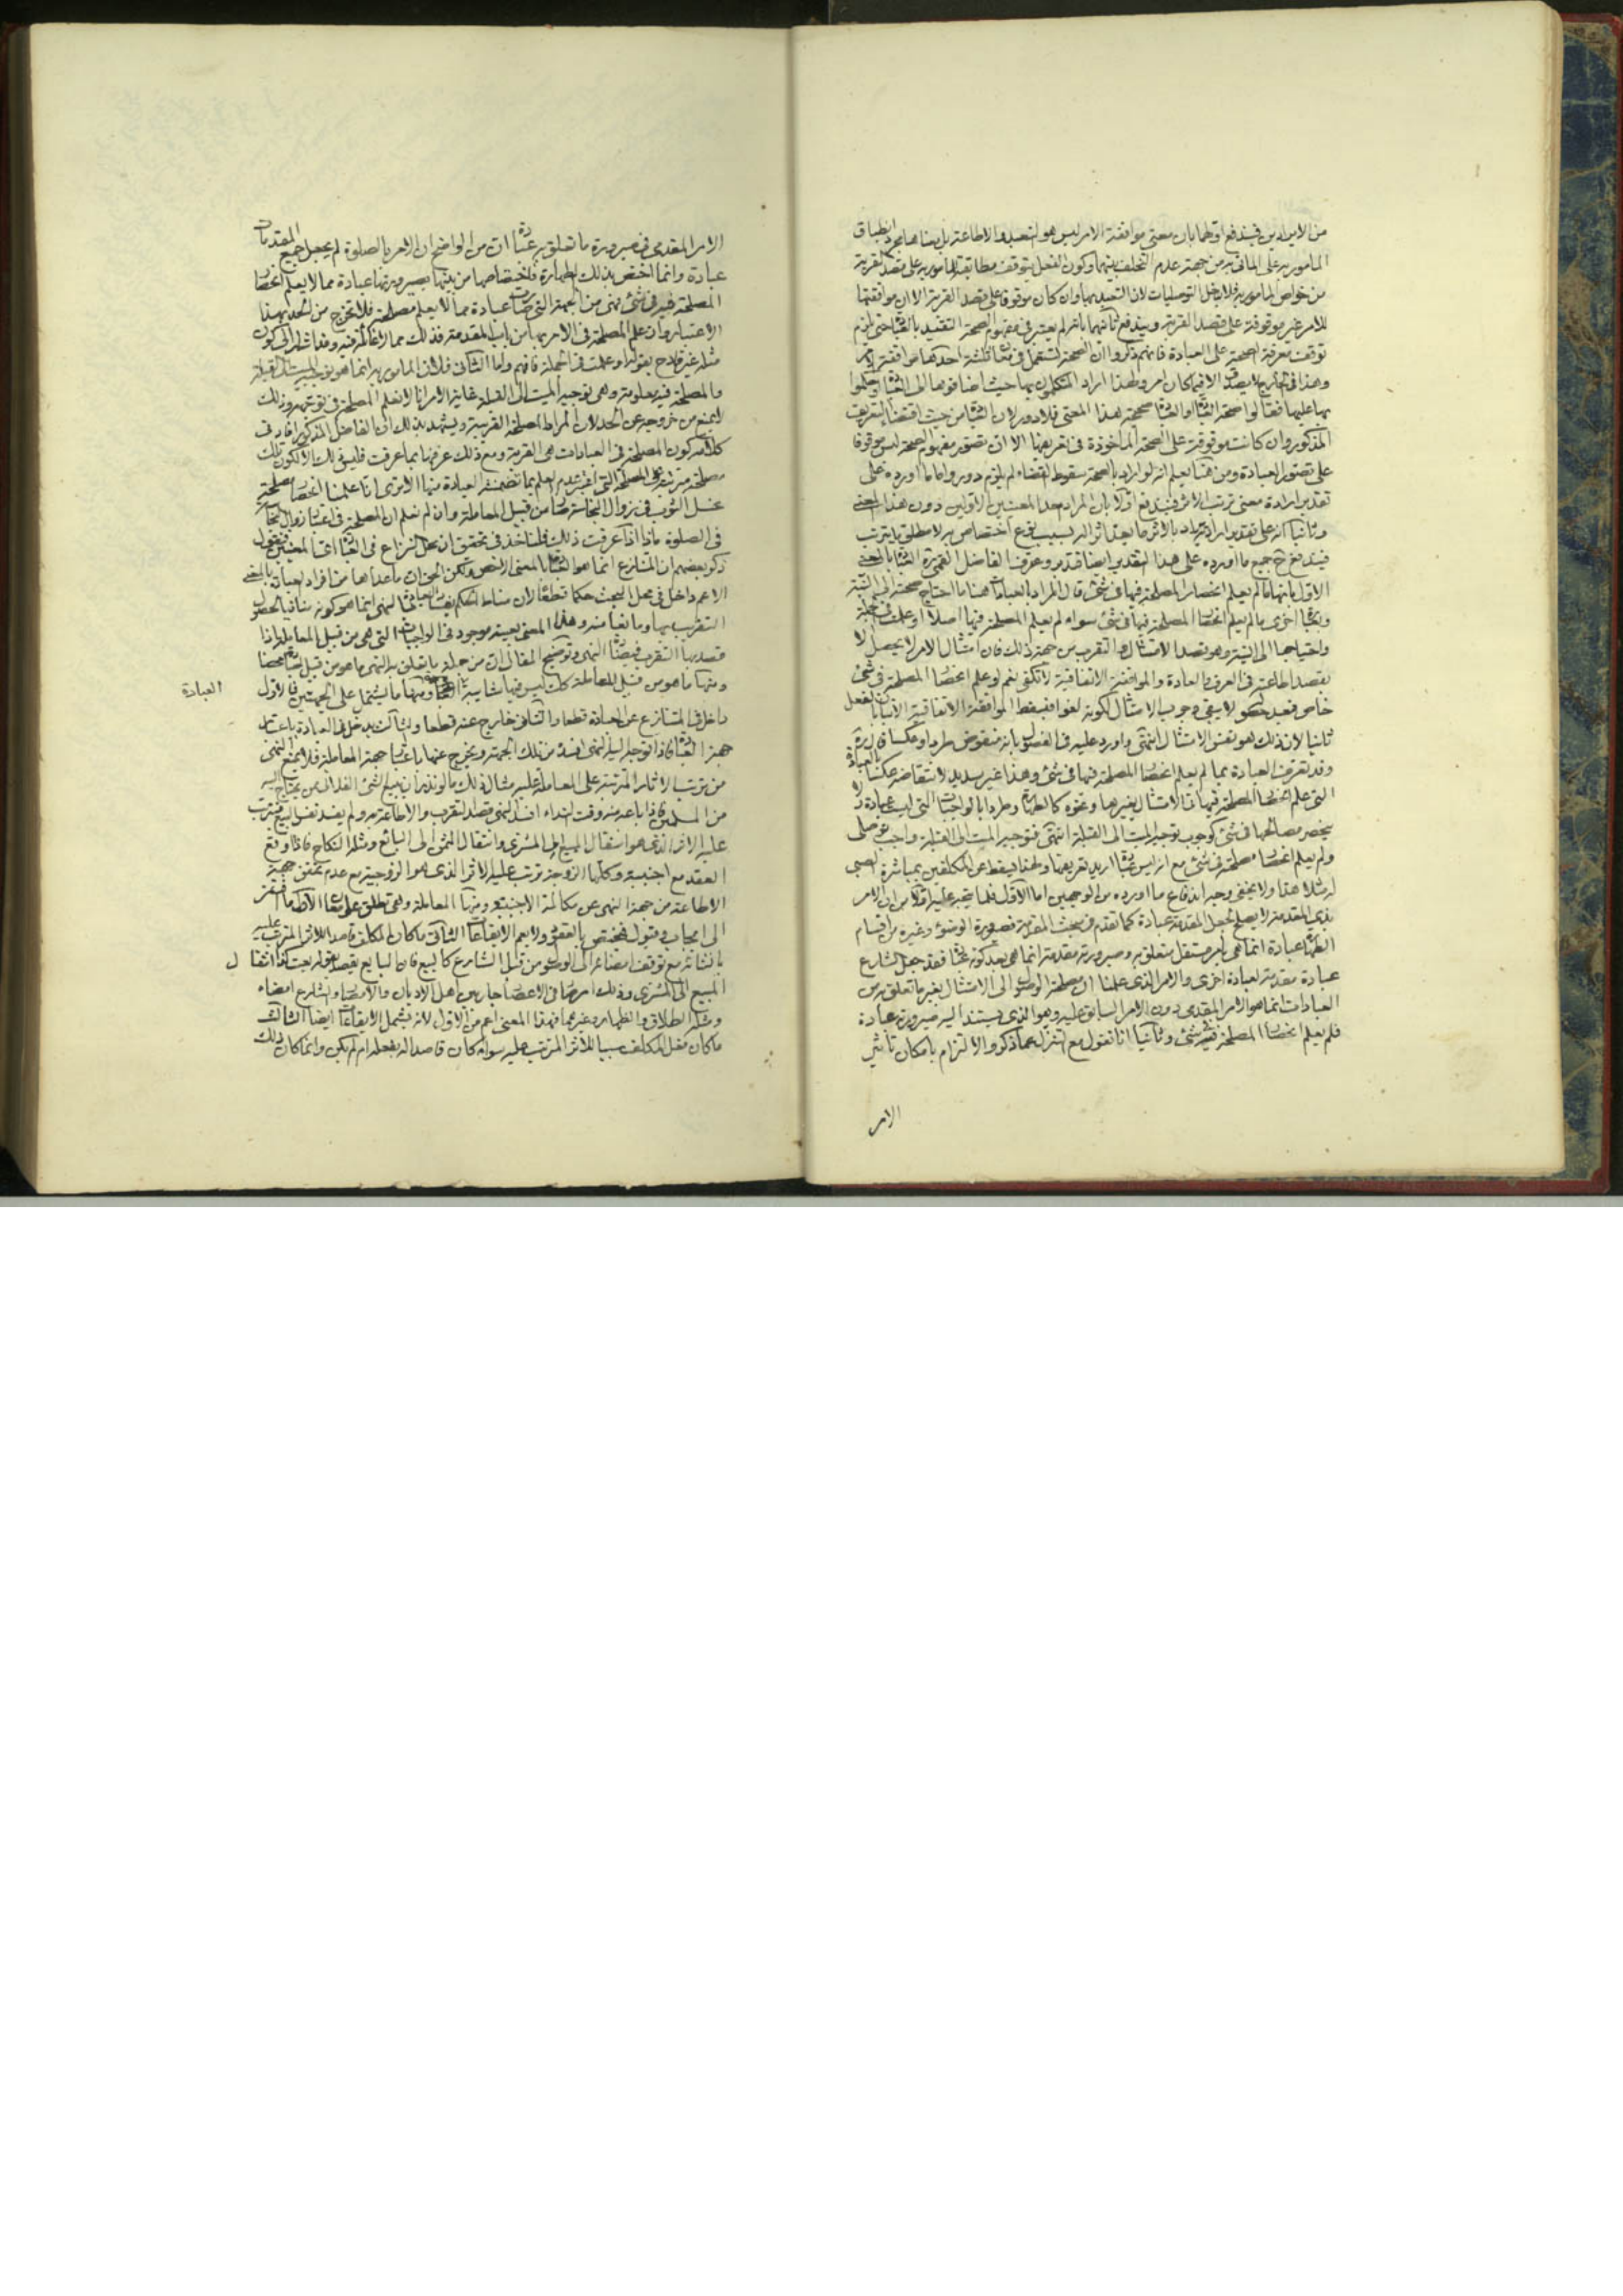 من الايرادين فيندفع اولهما بان معنى موافقة الامر ليس هو التعبد والاطاعة بل معناها مجرد انطباق
المأمور به على المأتى به من جهة عدم التخلف بينهما وكون الفعل يتوقف مطابقته للمأمور به على قصد القربة
من خواص المأمور به فلا يدخل التوصليات لان التعبد بها وان كان موقوفا على قصد القربة الا ان موافقتها
للامر غير موقوفة على قصد القربة ويندفع ثانيهما بانه لم يعتبر في مفهوم الصحة التقييد بالعبادة حتى يلزم
توقف معرفة الصحة على العبادة فانهم ذكروا ان الصحة تستعمل في معان ثلثة احدها موافقة الامر
وهذا في الخارج لا يصدق الا فيما كان امر ولهذا اراد المتكلمون بها حيث اضافوها الى العبادة او حكموا
بها عليها فقالوا صحة العبادة او العبادة صحيحة هذا المعنى فلا دور لان العبادة من حيث اقتضاء التعريف
المذكور وان كانت موقوفة على الصحة المأخوذة في تعريفها الا ان تصور مفهوم الصحة ليس موقوفا
على تصور العبادة ومن هنا يعلم انه لو اراد بالصحة سقوط القضاء لم يلزم دور واما ما اورده على
تقدير ارادة معنى ترتب الاثر فيندفع اولا بان المراد احد المعنيين الاولين دون هذا المعنى
وثانيا انه على تقدير ارادته يراد بالاثر ما يعد اثرا له بسبب نوع اختصاص به لا مطلق ما يترتب
فيندفع ح جميع ما اورده على هذا التقدير ايضا فتدبر وعرف الفاضل القمى ره العبادة بالمعنى
الاول بانها ما لم يعلم انحصار المصلحة فيها في شئ قال المراد بالعبادات هنا ما احتاج صحتها الى النية
وبعبارة اخرى ما لم يعلم انحصار المصلحة فيها في شئ سواء لم يعلم المصلحة فيها اصلا او علمت في الجملة
واحتياجها الى النية وهو قصد الامتثال والتقرب من جهة ذلك فان امتثال الامر لا يحصل الا
بقصد اطاعته في العرف والعادة والموافقة الاتفاقية لا تكفى نعم لو علم انحصار المصلحة في شئ
خاص فبعد حصوله لا يبقى وجوب الامتثال لكونه لغوا فيسقط الموافقة الاتفاقية الاتيان بالفعل
ثانيا لان ذلك هو نفس الامتثال انتهى واورد عليه في الفصول بانه منقوض طردا وعكسا قال ره
وقد تعرف العبادة بما لم يعلم انحصار المصلحة فيها في شئ وهذا غير سديد لانتقاضه عكسا بالعبادة
التى علم انحصار المصلحة فيها في الامتثال بغيرها ونحوه كالطهارة وطردا بالواجبات التى ليست عبادة ولا
ينحصر مصالحها في شئ كوجوب توجيه الميت الى القبلة انتهى فتوجيه الميت الى القبلة واجب توصلى
ولم يعلم انحصار مصلحته في شئ مع انه ليس عبادة اريد تعريفها ولهذا يسقط عن المكلفين بمباشرة الصبى
له مثلا هذا ولا يخفى وجه اندفاع ما اورده من الوجهين اما الاول فلما يتجه عليه اولا من ان الامر
بذى المقدمة لا يصلح لجعل المقدمة عبادة كما تقدم في مبحث المقدمة فصيرورة الوضوء وغيره من اقسام
الطهارة عبادة انما هى بامر مستقل متعلق به وصيرورته مقدمة انما هى بعد كونه عبادة فقد جعل الشارع
عبادة مقدمة لعبادة اخرى والامر الذى علمنا ان مصلحته الوصول الى الامتثال بغير ما تعلق به من
العبادات انما هو الامر المقدمى دون الامر السابق عليه وهو الذى يستند اليه صيرورته عبادة
فلم يعلم انحصار المصلحة فيه في شئ وثانيا انا نقول مع التنزل عما ذكر والالتزام بامكان تأثير
الامر
الامر المقدمى في صيرورة ما تعلق به عبادة ان من الواضح ان الامر بالصلوة لم يجعل جميع المقدمات
عبادة وانما اختص بذلك الطهارة فاختصاصها من بينها بصيرورتها عبادة مما لا يعلم انحصار
المصلحة فيه في شئ فهى من الجهة التى صارت عبادة مما لا يعلم مصلحته فلا تخرج من الحد بهذا
الاعتبار وان علم المصلحة في الامر بها من باب المقدمة فذلك مما
مثله غير قادح بقوله او علمت في الجملة فافهم واما الثانى فلان المأمور به انما هو توجيه الميت الى القبلة
والمصلحة فيه معلومة وهى توجيه الميت الى القبلة غاية الامر انا لا نعلم المصلحة في توجيهه وذلك
لا يمنع من خروجه عن الحد لان المراد المصلحة القريبة ويشهد بذلك ان الفاضل المذكور افاد في
كلامه كون المصلحة في العبادات هى القربة ومع ذلك عرفها بما عرفت فليس ذلك الا لكون تلك
مصلحة مترتبة على المصلحة التى اعتبر عدم العلم بها تضمنته العبادة منها الا ترى انا علمنا انحصار مصلحة
غسل الثوب في زوال النجاسة فصار من قبيل المعاملة وان لم نعلم ان المصلحة في اعتبار زوال النجاسة
في الصلوة ماذا اذا عرفت ذلك فلنأخذ في تحقيق ان محل النزاع في العبادة اى المعنيين فنقول
ذكر بعضهم ان المتنازع انما هو العبادة بالمعنى الاخص ولكن الحق ان ما عداها من افراد العبادة بالمعنى
الاعم داخل في محل البحث حكما قطعا لان مناط الحكم بفساد العبادة بالنهى انما هو كونه منافيا لحصول
التقرب بها وما نعا منه وهذا المعنى بعينه موجود في الواجبات التى هى من قبيل المعاملة اذا
قصد بها التقرب فيضادها النهى وتوضيح المقال ان من جملة ما يتعلق به النهى ما هو من قبيل العبادة محضا
ومنها ما هو من قبيل المعاملة كك ليس فيها شائبة العبادة ومنها ما يشتمل على الجهتين فالاول
العبادة
داخل في المتنازع عن العبادة قطعا والثانى خارج عنه قطعا والثالث يدخل في العبادة باعتبار
جهة العبادة فاذا توجه اليه النهى افسده من تلك الجهة ويخرج عنها باعتبار جهة المعاملة فلا يمنع النهى
من ترتب الاثار المترتبة على المعاملة عليه مثال ذلك ما لو نذر ان يبيع الشئ الفلانى ممن يحتاج اليه
من المسلمين فاذا باعه منه وقت النداء افسد النهى قصد التقرب والاطاعة به ولم يفسد نفس البيع فيترتب
عليه الاثر الذى هو انتقال المبيع الى المشترى وانتقال الثمن الى البائع ومثله النكاح فاذا وقع
العقد مع اجنبية وكلمها الزوجة ترتب عليه الاثر الذى هو الزوجية مع عدم تحقق جهة
الاطاعة من جهة النهى عن مكالمة الاجنبية ومنها المعاملة وهى تطلق على معان الاول ما افتقر
الى ايجاب وقبول فيختص بالعقود ولا يعم الايقاعات الثانى ما كان المكلف قاصدا للاثر المترتب عليه
بانشائه مع توقف امضائه الى الوصول من قبل الشارع كالبيع فان البايع يقصد بقوله بعت كذا انتقال
المبيع الى المشترى وذلك امر
ومثله الطلاق والظهار وغيرهما فهذا المعنى اعم من الاول لانه يشمل الايقاعات ايضا الثالث
ما كان فعل المكلف سببا للاثر المترتب عليه سواء كان قاصدا له بفعله ام لم يكن وانما كان ذلك